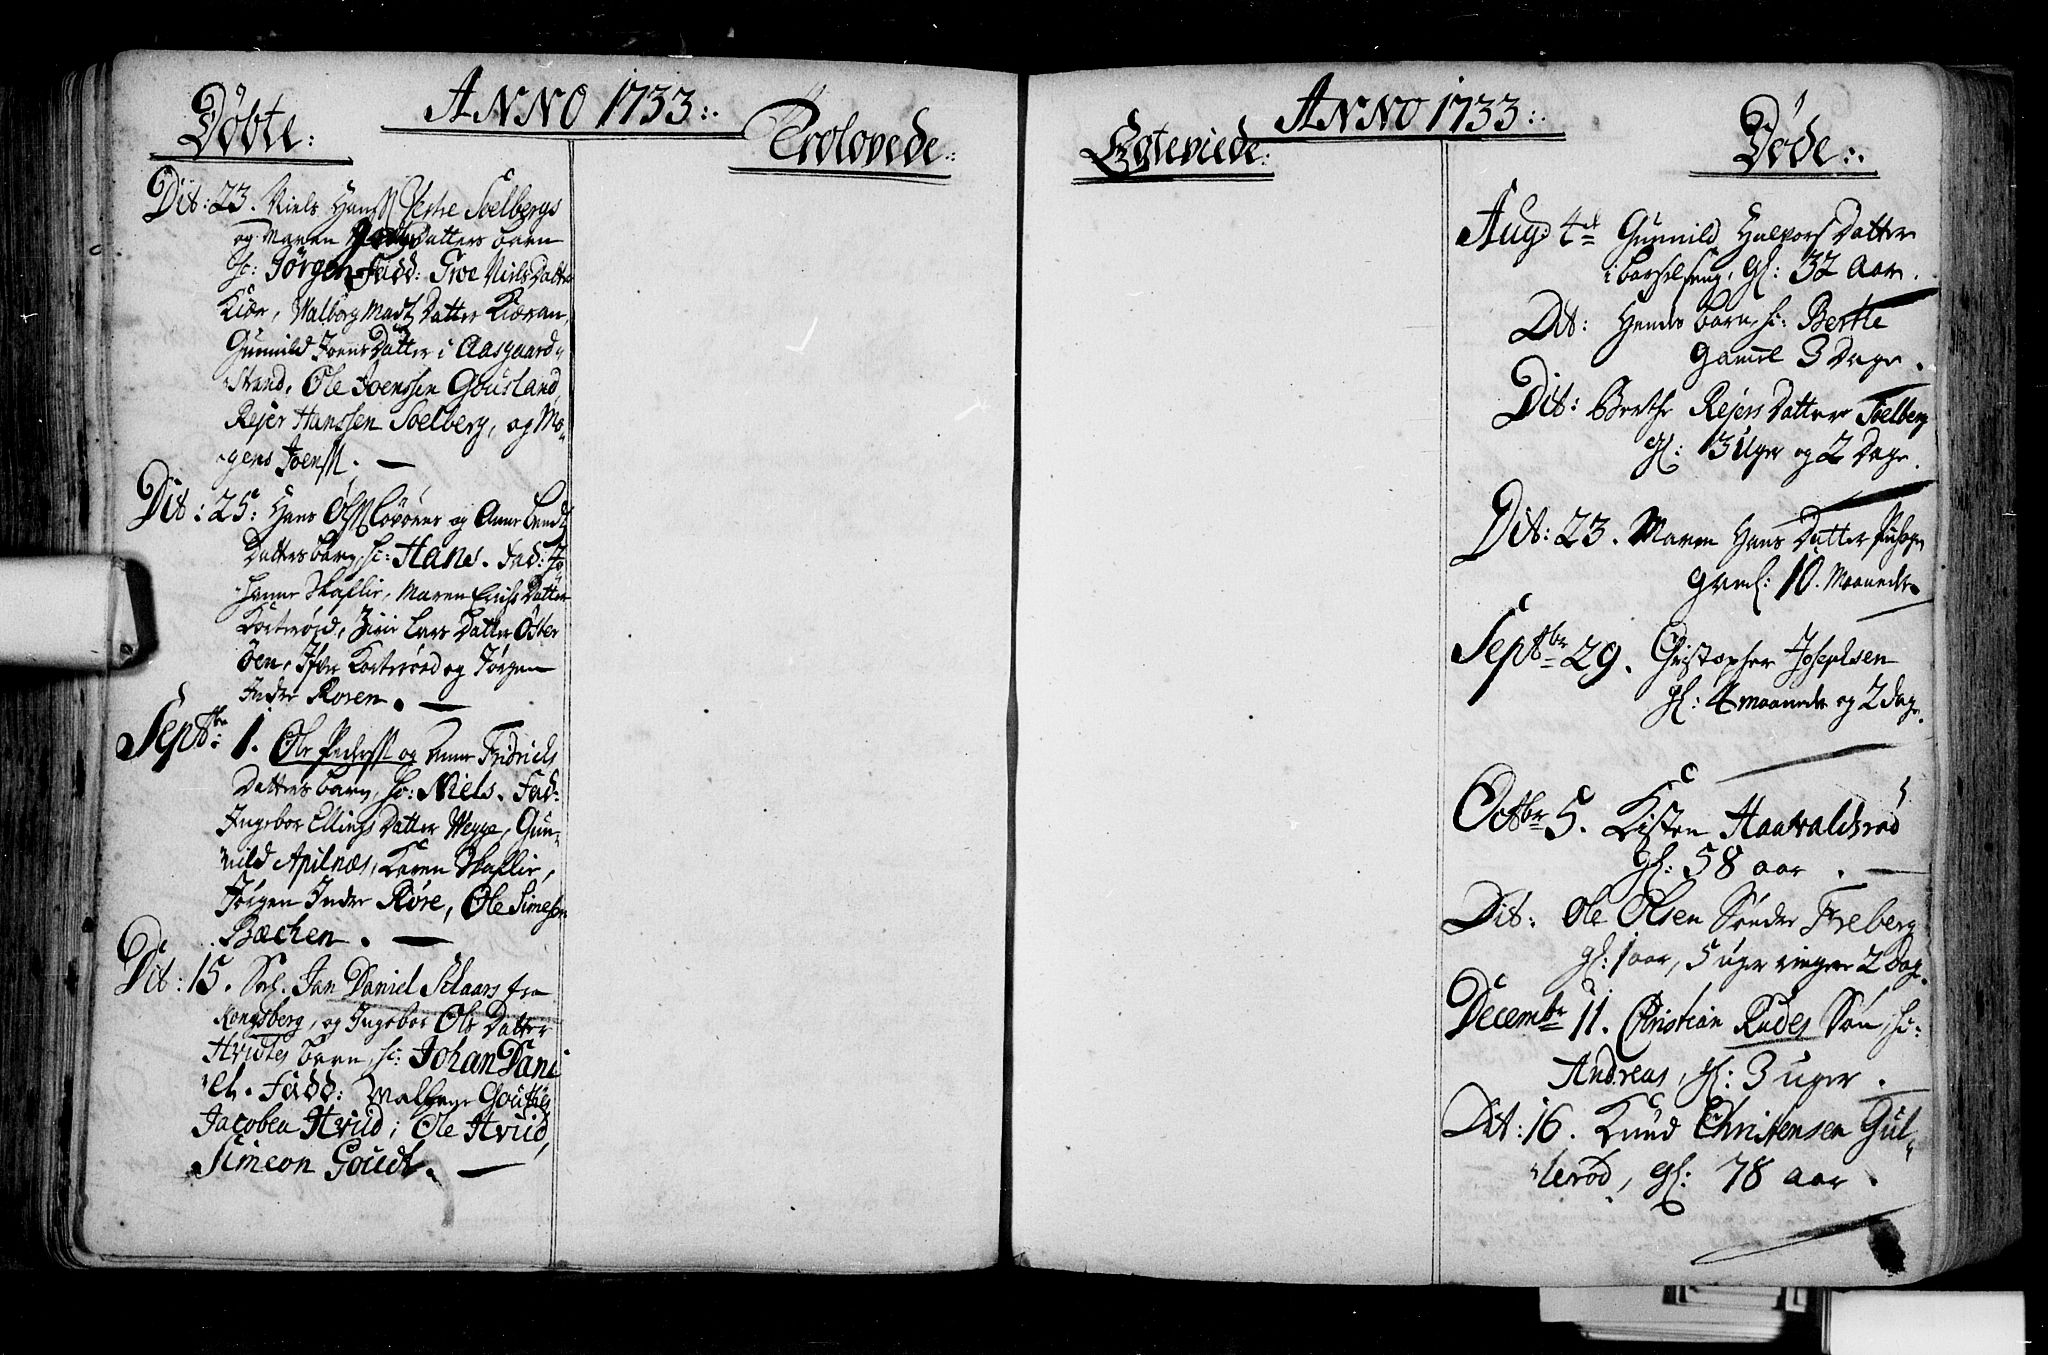 ANNO 1733:.
Döbte:
Trolovede.:
Dit: 23. Niels Hanss Selbergs
og Maren Datters barn
h: Jörgen Fadd: Niels Datter
Kiær, Walborg Madz Datter Kiæran,
Gunnild Joens Datter i Aasgaard
Strand, Ole Joenssen Gousland,
Rejer Hanssen Soelberg, og Mo-
gens Joenss. —
Dit: 25: Hans Olss og Anne
Datters barn, h: Hans. Fad: Jo-
hanne Skaflie, Maren Datter
Kortnröd, Lars Datter Öster
Öen, Ifver Kortnröd og Jörgen
Indre Roren. —
Septbr: 1. Ole Pederss og Anne Fridrichs
Datters barn, h: Niels. Fad:
Ingebor Ellings Datter Wegge, Gun-
nild Apilnæs, Karen Skaflie,
Jörgen Indre Röre, Ole Simesen
Bæchen. —
Dit: 15. Jan Daniel Sclaars fra
Kongsberg, og Ingebor Ols Datter
Hvides barn, h: Johan Dani
el. Fadd:
Jacobea Hviid; Ole Hviid,
Simeon Goudt. —
ANNO 1733:.
Egteviede:
Döde:.
Aug: 4de Gunnild Halvors Datter
i barselseng, gl: 32 aar.
Dit: Hendes barn, h: Berthe
gamel 3 Dage.
Dit: Berthe Rejers Datter Soelberg
gl: 3 Uger og 2 Dage.
Dit: 23. Maren Hans Datter
gaml: 10. Maaneder
Septbr 29. Christopher Josephsen
gl: 4 maaneder og 2 dage.
Octbr 5. Kisten Haavaldsröd
gl: 58 aar. —
Dit: Ole Olsen Sönder Freberg
gl: 1 aar, 5 uger ringere 2 Dage.
Decembr 11. Christian Rudes Sön, h:
Andreas, gl: 3 uger.
Dit: 16. Knud Christensen Gul-
leröd, gl: 78 aar.